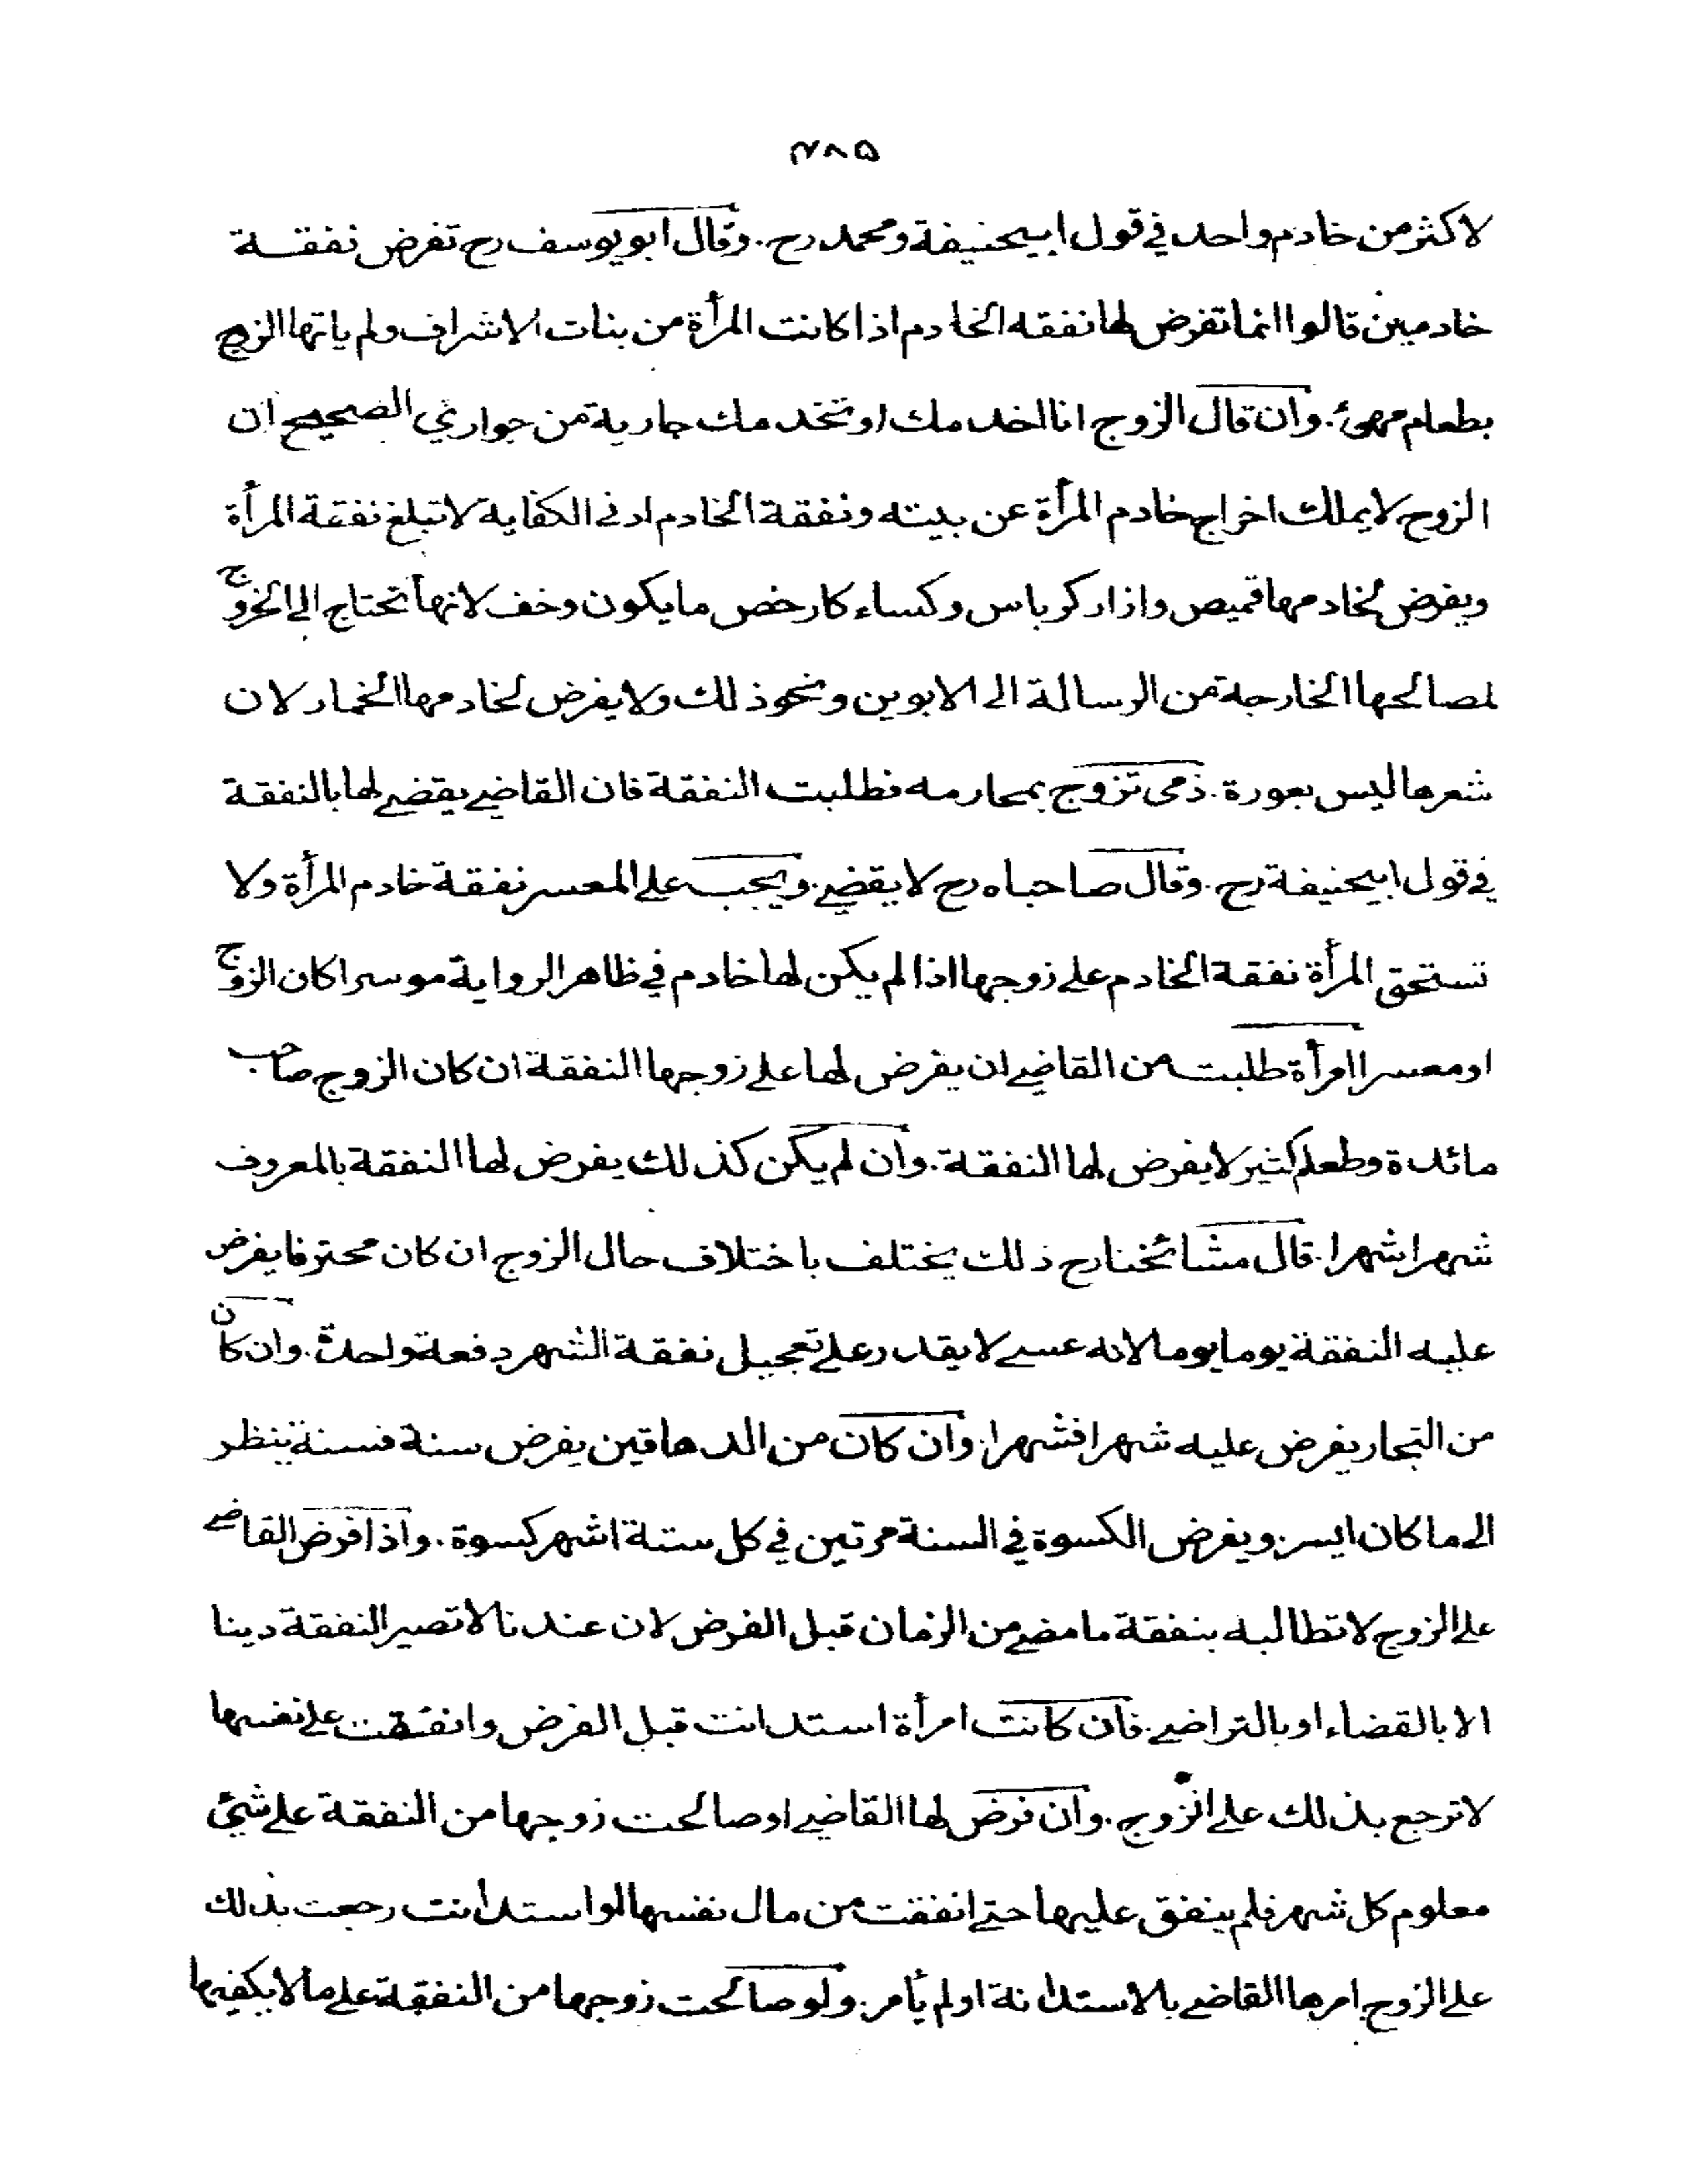 ۴۸۵
لاكثر من خادم واحد في قول ابيحنيفة ومحمد رح . وقال ابو يوسف رح تفرض نفقة
خادمين قالوا انما تفرض لها نفقه الخادم اذا كانت المرأة من بنات الاشراف ولم ياتها الزوج
بطعام مهئ . وان قال الزوج انا اخدمك او تخدمك جارية من جواري الصحيح ان
الزوج لا يملك اخراج خادم المرأة عن بيته ونفقة الخادم ادنى الكفاية لا تبلغ نفقة المرأة
ويفرض لخادمها قميص وازار كرباس وكساء كارخص ما يكون وخف لانها تحتاج الى الخروج
لمصالحها الخارجة من الرسالة الى الابوين ونحو ذلك ولا يفرض لخادمها الخمار لان
شعرها ليس بعورة . ذمى تزوج بمحارمه فطلبت النفقة فان القاضي يقضي لها بالنفقة
في قول ابيحنيفة رح . وقال صاحباه رح لا يقضي . ويجب على المعسر نفقة خادم المرأة ولا
تستحق المرأة نفقة الخادم على زوجها اذا لم يكن لها خادم في ظاهر الرواية موسرا كان الزوج
او معسرا امرأة طلبت من القاضي ان يفرض لها على زوجها النفقة ان كان الزوج صاحب
مائدة وطعام كثير لا يفرض لها النفقة . وان لم يكن كذلك يفرض لها النفقة بالمعروف
شهرا شهرا . قال مشائخنا رح ذلك يختلف باختلاف حال الزوج ان كان محترفا يفرض
عليه النفقة يوما يوما لانه عسى لا يقدر على تعجيل نفقة الشهر دفعة واحدة . وان كان
من التجار يفرض عليه شهرا فشهرا . وان كان من الدهاقين يفرض سنة فسنة ينظر
الى ما كان ايسر . ويفرض الكسوة في السنة مرتين في كل ستة اشهر كسوة . واذا فرض القاضي
على الزوج لا تطالبه بنفقة ما مضى من الزمان قبل الفرض لان عندنا لا تصير النفقة دينا
الا بالقضاء او بالتراضي . فان كانت امرأة استدانت قبل الفرض وانفقت على نفسها
لا ترجع بذلك على الزوج . وان فرض لها القاضي او صالحت زوجها من النفقة على شئ
معلوم كل شهر فلم ينفق عليها حتى انفقت من مال نفسها او استدانت رجعت بذلك
على الزوج امرها القاضي بالاستدانة او لم يأمر . ولو صالحت زوجها من النفقة على ما لا يكفيها